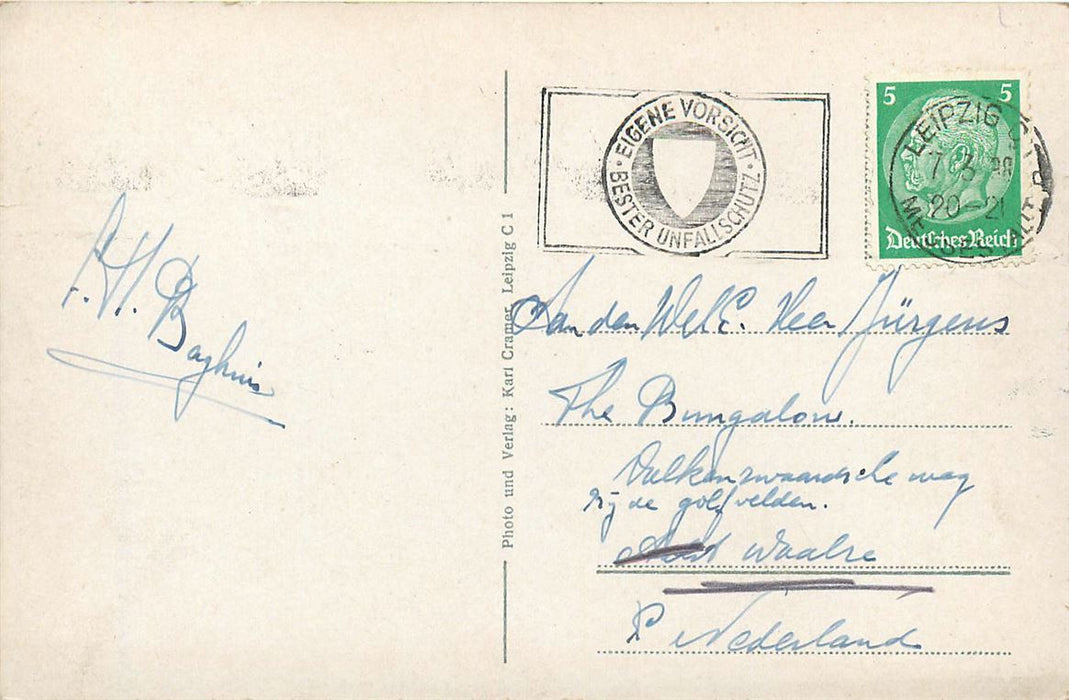 EIGENE VORSICHT · BESTER UNFALLSCHUTZ ·
5 5
LEIPZIG C1
7.3.38
20-21
Deutsches Reich
Photo und Verlag: Karl Cramer, Leipzig C 1
Aan den WelE. Heer Jürgens
The Bungalow.
Valkenswaardsche weg
bij de golfvelden.
Waalre
Nederland